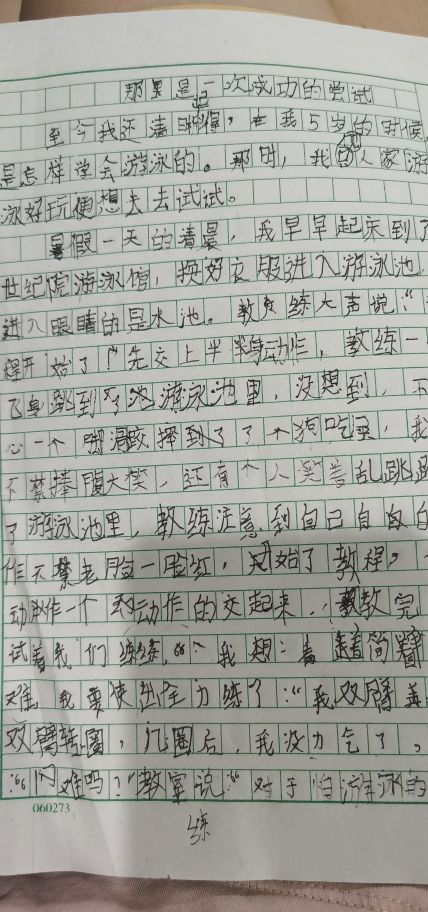 那是一次成功的尝试
至今我还清晰记得，在我5岁的时候，
是怎样学会游泳的。那时，我因人家游
泳好玩便想去去试试。
暑假一天的清晨，我早早起床到了
世纪院游泳馆，换好衣服进入游泳池，
进入眼睛的是水池。教练大声说：“
开始了！”先交上半身动作，教练一
飞身跳到了游泳池里，没想到，不
心一个脚滑跤摔到了了个狗吃，我
不禁捧腹大笑，还有个人笑着乱跳
了游泳池里，教练注意到自己自
作不禁老脸一脸红，开始了教程，
动作一个动作的交起来，教完
试着我们练练。“我想：着简
难，我要使出全力练了：“我双臂
双臂转圈，几圈后，我没力气了，
“闪难吗？”教室说：“对于 游泳的
060273
练